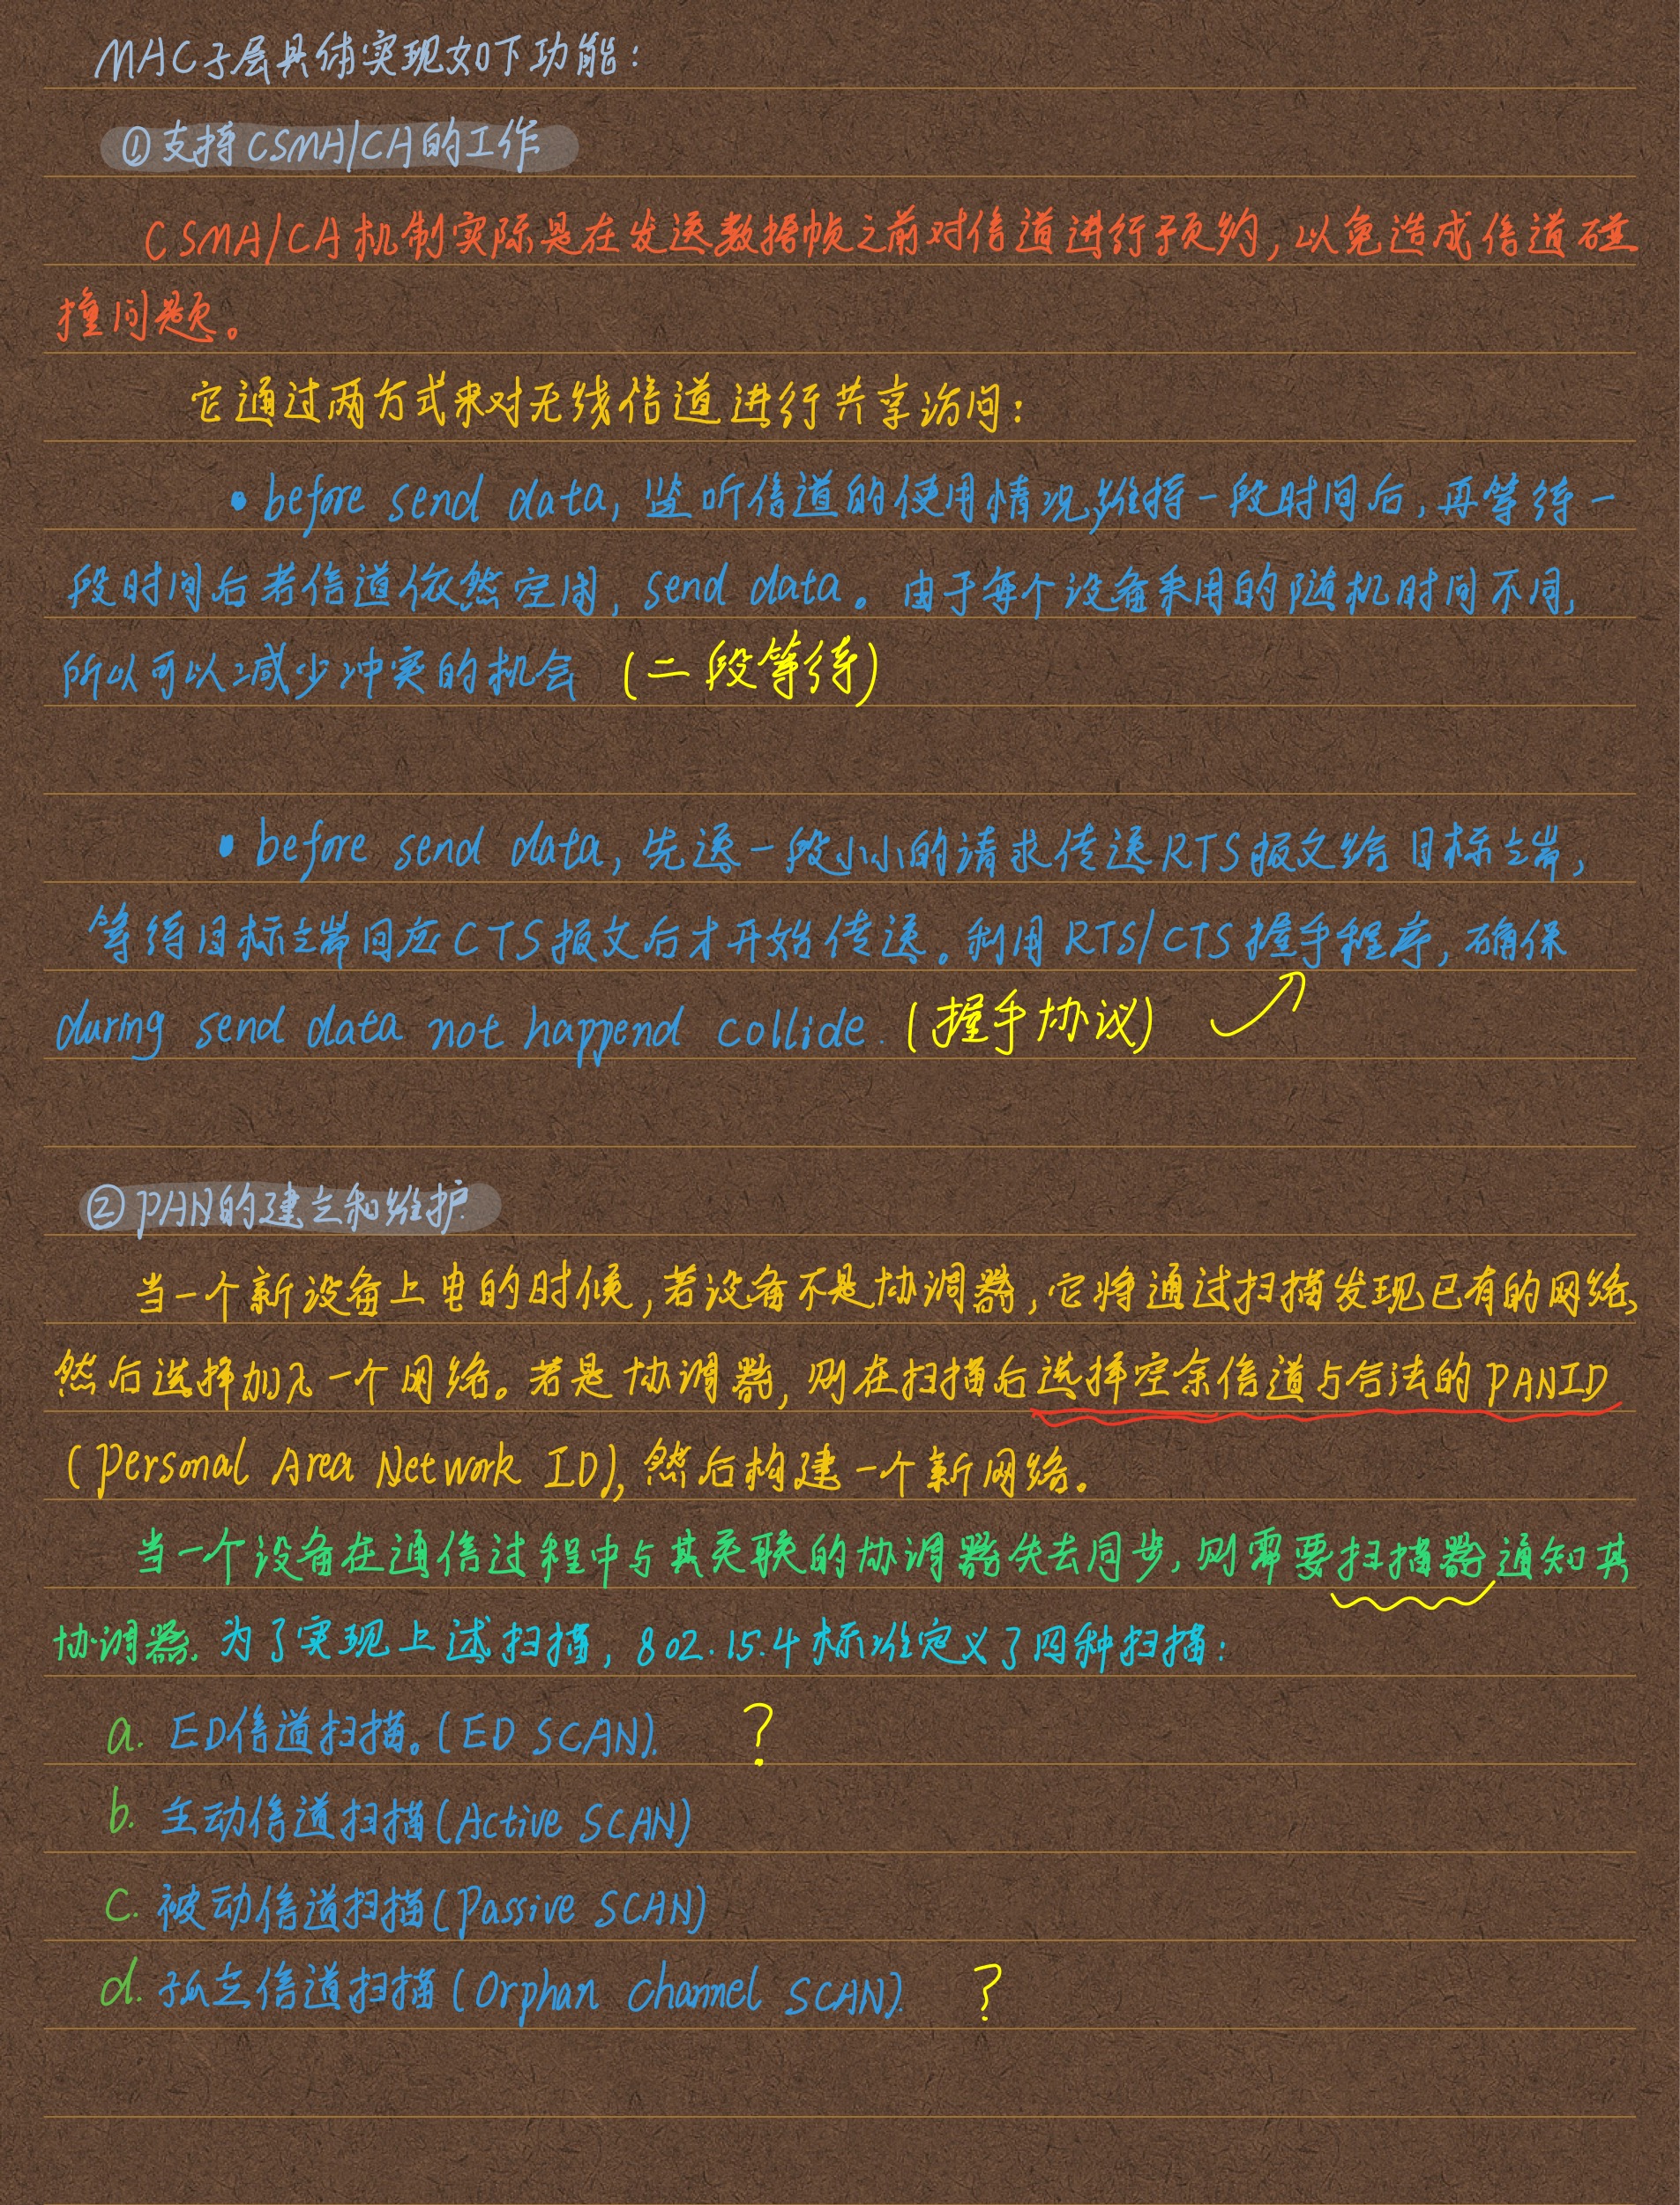 MAC子层具体实现如下功能：
①支持CSMA/CA的工作
CSMA/CA机制实际是在发送数据帧之前对信道进行预约，以免造成信道碰
撞问题。
它通过两方式来对无线信道进行共享访问：
• before send data, 监听信道的使用情况,维持一段时间后，再等待一
段时间后若信道依然空闲, send data。由于每个设备采用的随机时间不同,
所以可以减少冲突的机会 (二段等待)
• before send data, 先送一段小小的请求传送RTS报文给目标端,
等待目标端回应CTS报文后才开始传送。利用 RTS/CTS 握手程序, 确保
during send data not happend collide. (握手协议)
②PAN的建立和维护
当一个新设备上电的时候, 若设备不是协调器, 它将通过扫描发现已有的网络,
然后选择加入一个网络。若是协调器, 则在扫描后选择空余信道与合法的PANID
(Personal Area Network ID), 然后构建一个新网络。
当一个设备在通信过程中与其关联的协调器失去同步, 则需要扫描器通知其
协调器. 为了实现上述扫描, 802.15.4标准定义了四种扫描:
a. ED信道扫描。(ED SCAN). ?
b. 主动信道扫描(Active SCAN)
c. 被动信道扫描(Passive SCAN)
d. 孤立信道扫描(Orphan Channel SCAN). ?